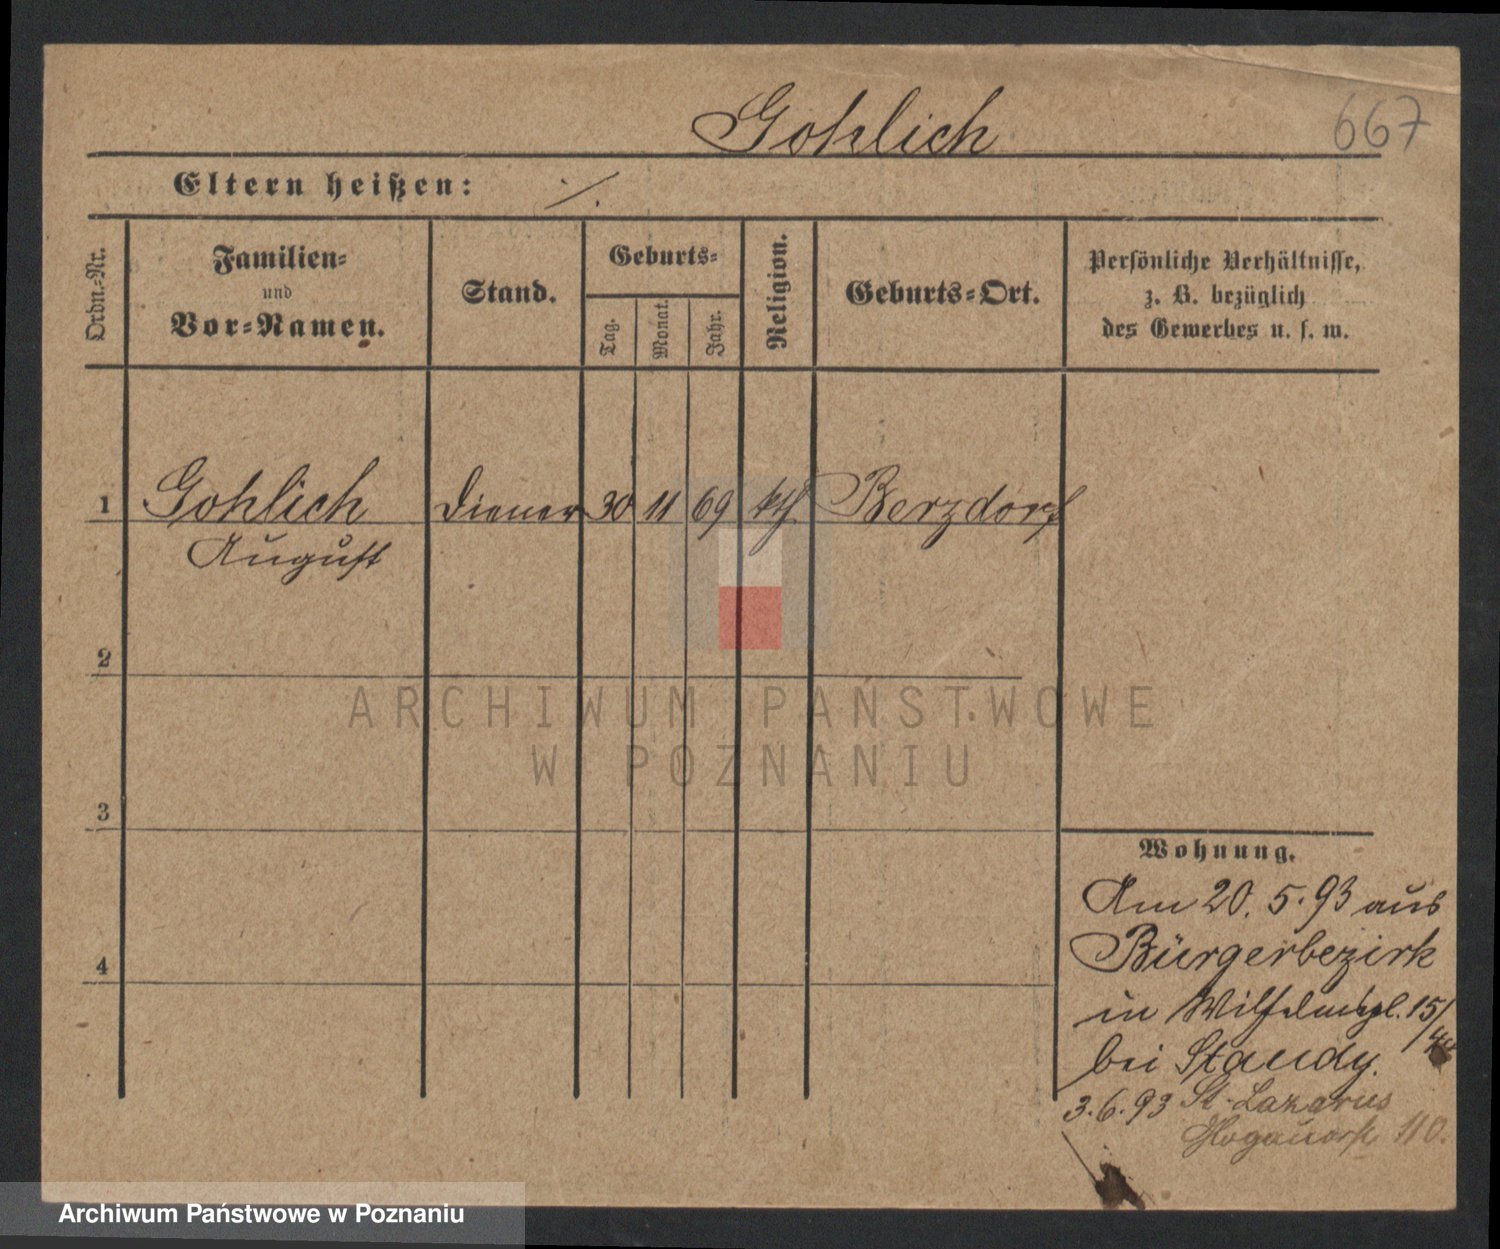 Gohlich
667
Eltern heißen: ./.
Ordn.-Nr.
Familien-
und
Vor-Namen.
Stand.
Geburts-
Tag.
Monat.
Jahr.
Religion.
Geburts-Ort.
Persönliche Verhältnisse,
z. B. bezüglich
des Gewerbes u. s. w.
1 Gohlich Diener 30 11 69 kth Berzdorf
August
2
3
4
Wohnung.
Am 20. 5. 93 aus
Bürgerbezirk
in Wilhelmspl. 15/
bei Standy.
3.6.93 St. Lazarus
Glogauerstr 110.
ARCHIWUM PAŃSTWOWE
W POZNANIU
Archiwum Państwowe w Poznaniu